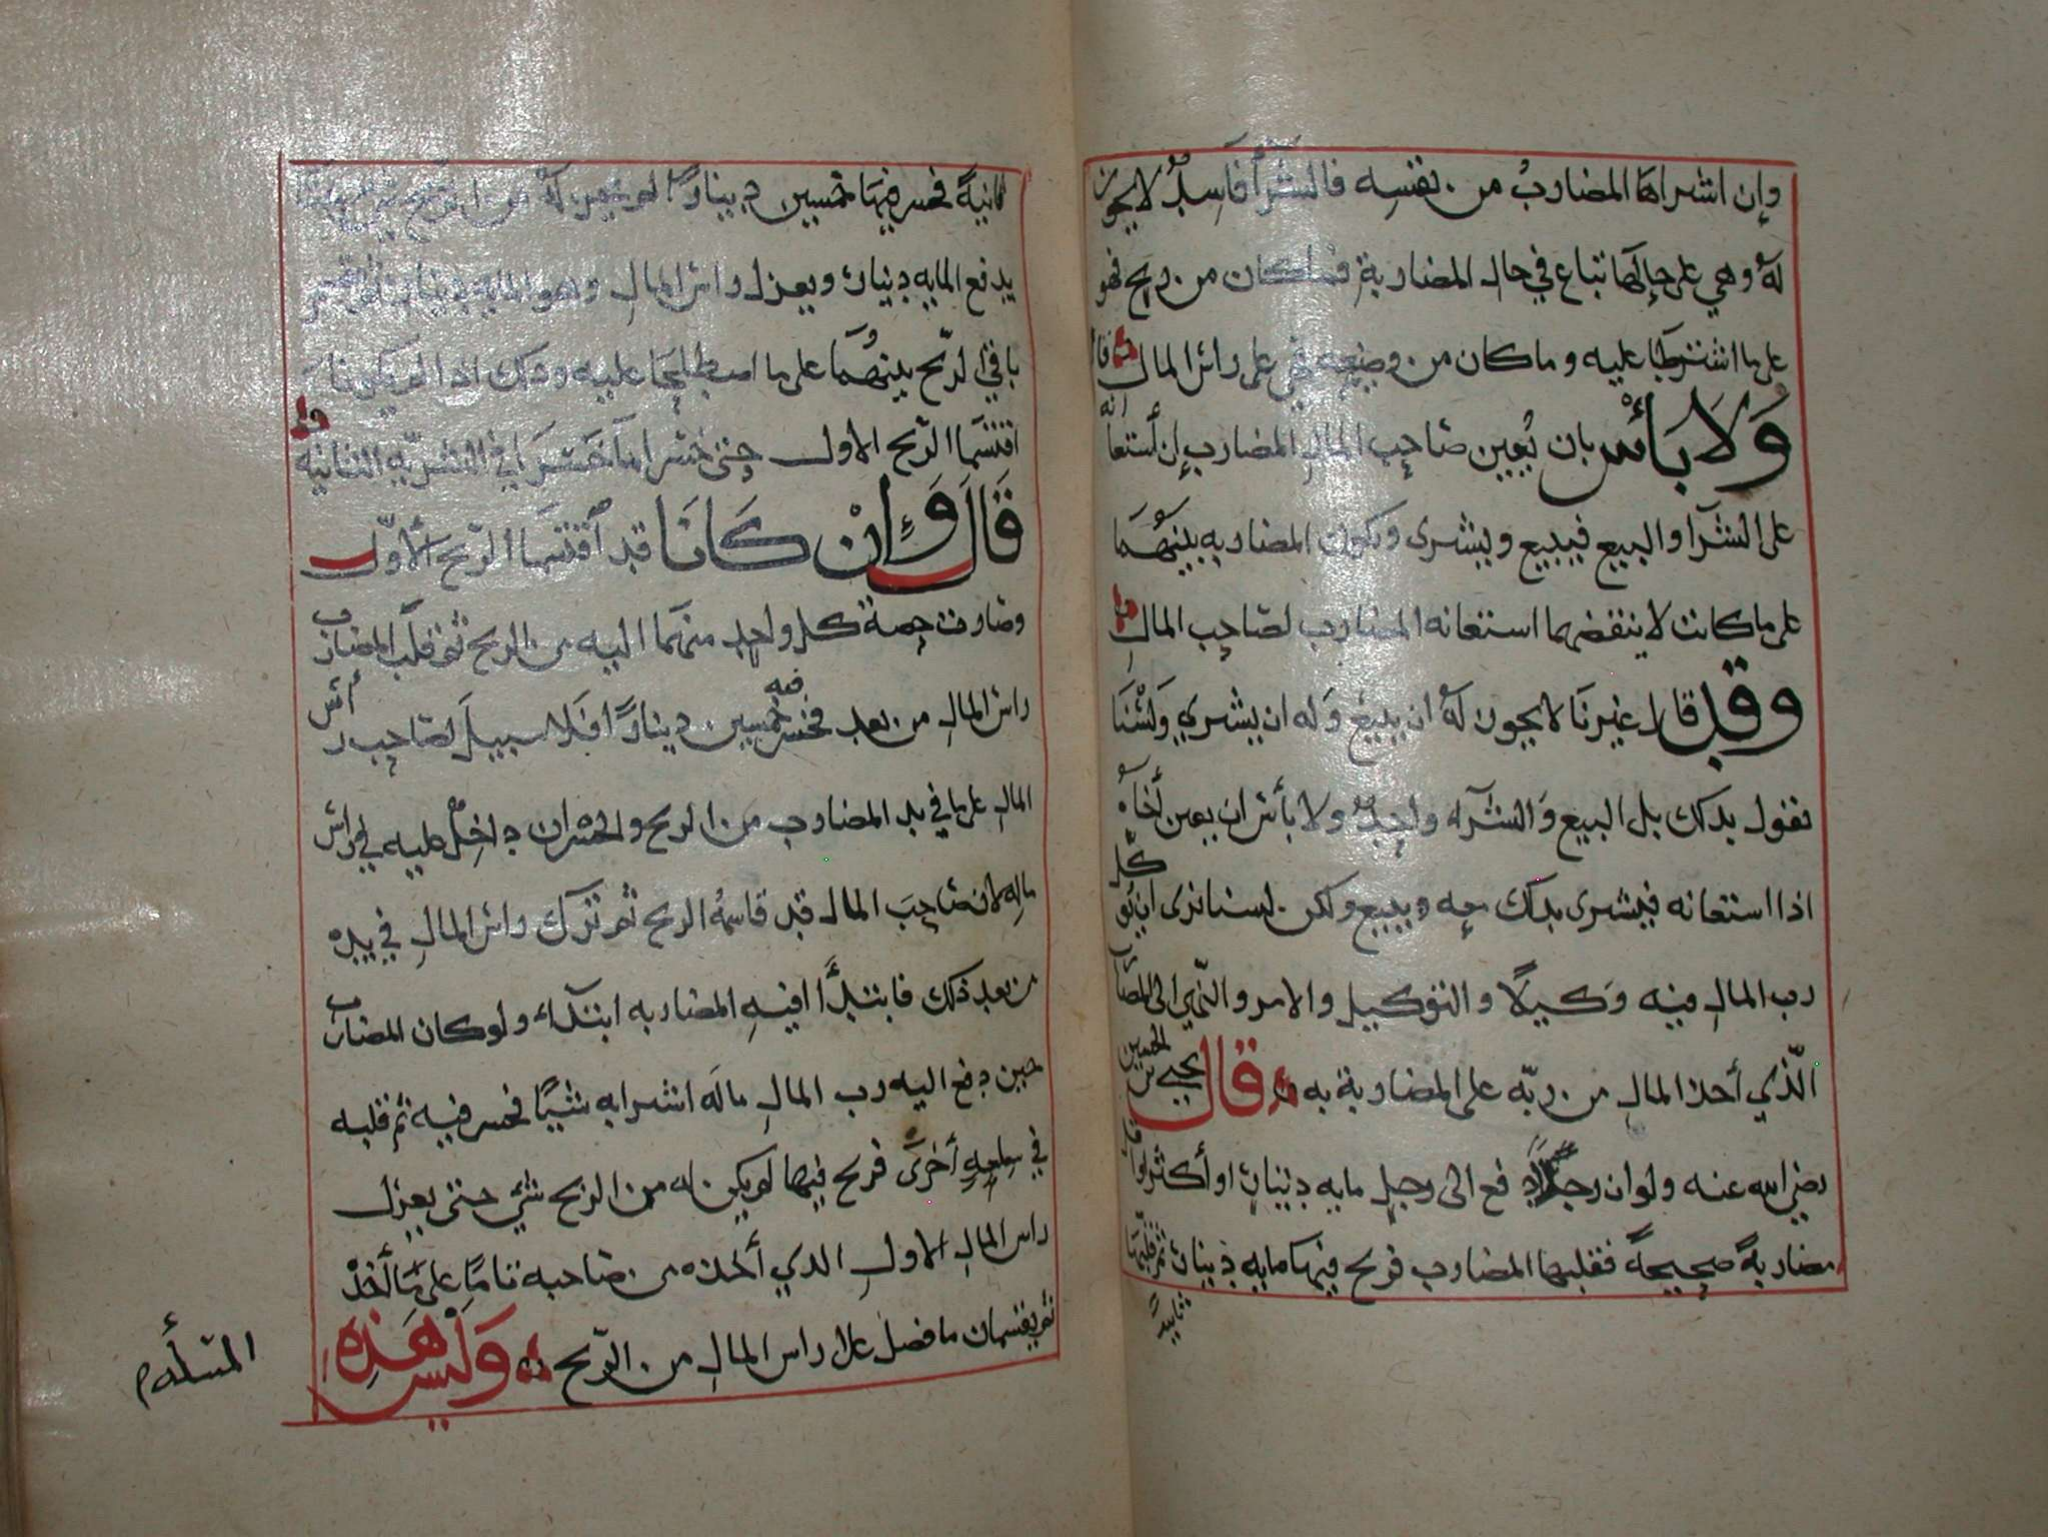 وإن اشتراها المضارب من نفسه فالشرآ فاسد لا يجوز
له وهي على حالها تباع في حال المضاربة فما كان من ربح فهو
على ما اشترطا عليه وما كان من وضيعه فهي على رأس المال
ولا بأس بان يعين صاحب المال المضارب إن أستعانه
على الشرآ والبيع فيبيع ويشترى وتكون المضاربه بينهما
على ما كانت لا ينقضهما استعانه المضارب لصاحب المال
وقد قال غيرنا لا يجوز له ان يبيع وله ان يشتري ولسنا
نقول بذلك بل البيع والشرآء واحد ولا بأس ان يعين أخاه
اذا استعانه فيشترى بذلك معه ويبيع ولكن لسنا نرى ان يوكل
رب المال فيه وكيلا والتوكيل والامر والنهي الى المضارب
الذي أخذ المال من ربه على المضاربة به قال يحيى بن الحسين
رضي الله عنه ولو ان رجلا دفع الى رجل مايه دينار او أكثر او اقل
مضاربة صحيحة فقلبها المضارب فربح فيها مايه دينار ثم قلبها
ثانية
ثانية فخسر فيها خمسين دينارا لم يكن له من الربح شيء حتى
يدفع المايه دينار ويعزل رأس المال وهو المايه دينار ثم يقتسم
باقي الربح بينهما على ما اصطلحا عليه وذلك اذا لم يكونا
اقتسما الربح الاول حتى خسرا ما خسرا في الشريه الثانيه
قال وإن كانا قد أقتسما الربح الأول
وصارت حصة كل واحد منهما اليه من الربح ثم قلب المضارب
راس المال من بعد فخسر فيه خمسين دينارا فلا سبيل لصاحب رأس
المال على ما في يد المضارب من الربح والخسران داخل عليه في رأس
ماله لان صاحب المال قد قاسمه الربح ثم ترك رأس المال في يده
من بعد ذلك فابتدأ فيه المضاربه ابتدآء ولو كان المضارب
حين دفع اليه رب المال ماله اشترا به شيئا فخسر فيه ثم قلبه
في سلعة أخرى فربح فيها لم يكن له من الربح شي حتى يعزل
راس المال الاول الذي أخذه من صاحبه تاما على ما أخذ
ثم يقتسمان ما فضل على راس المال من الربح وليس هذه
المسأله